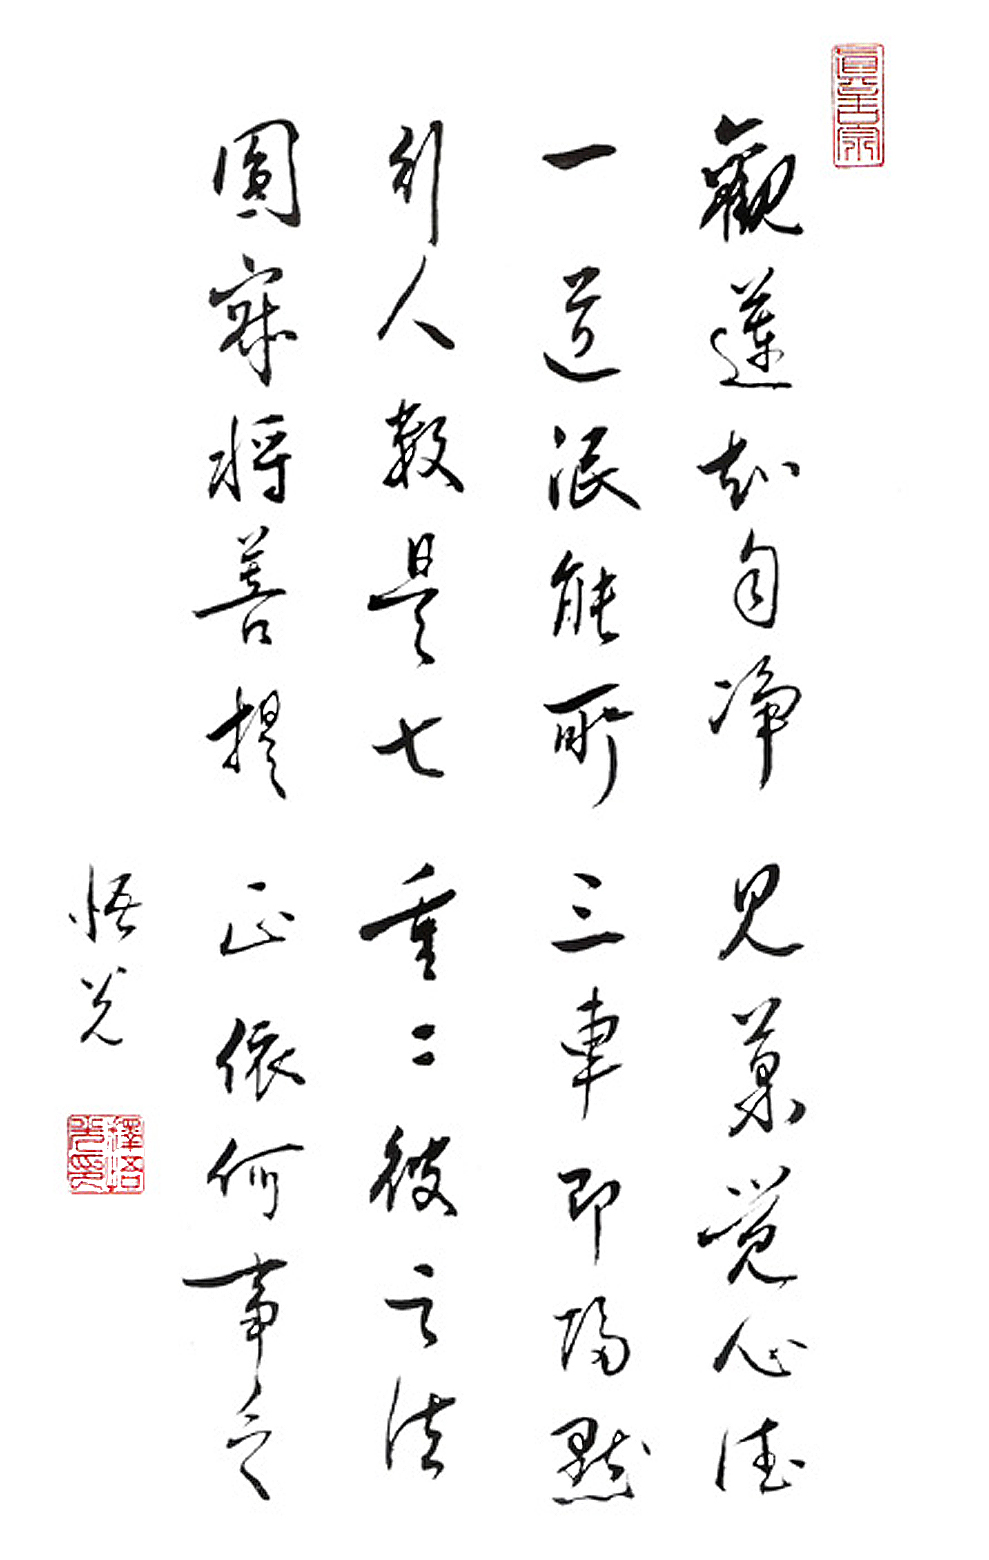 真言宗
觀蓮知自淨 見菓覺心德
一道泯能所 三車即歸默
人數是七 重〻彼法
圓寂將菩提 正依何事乏
悟光
釋悟光印